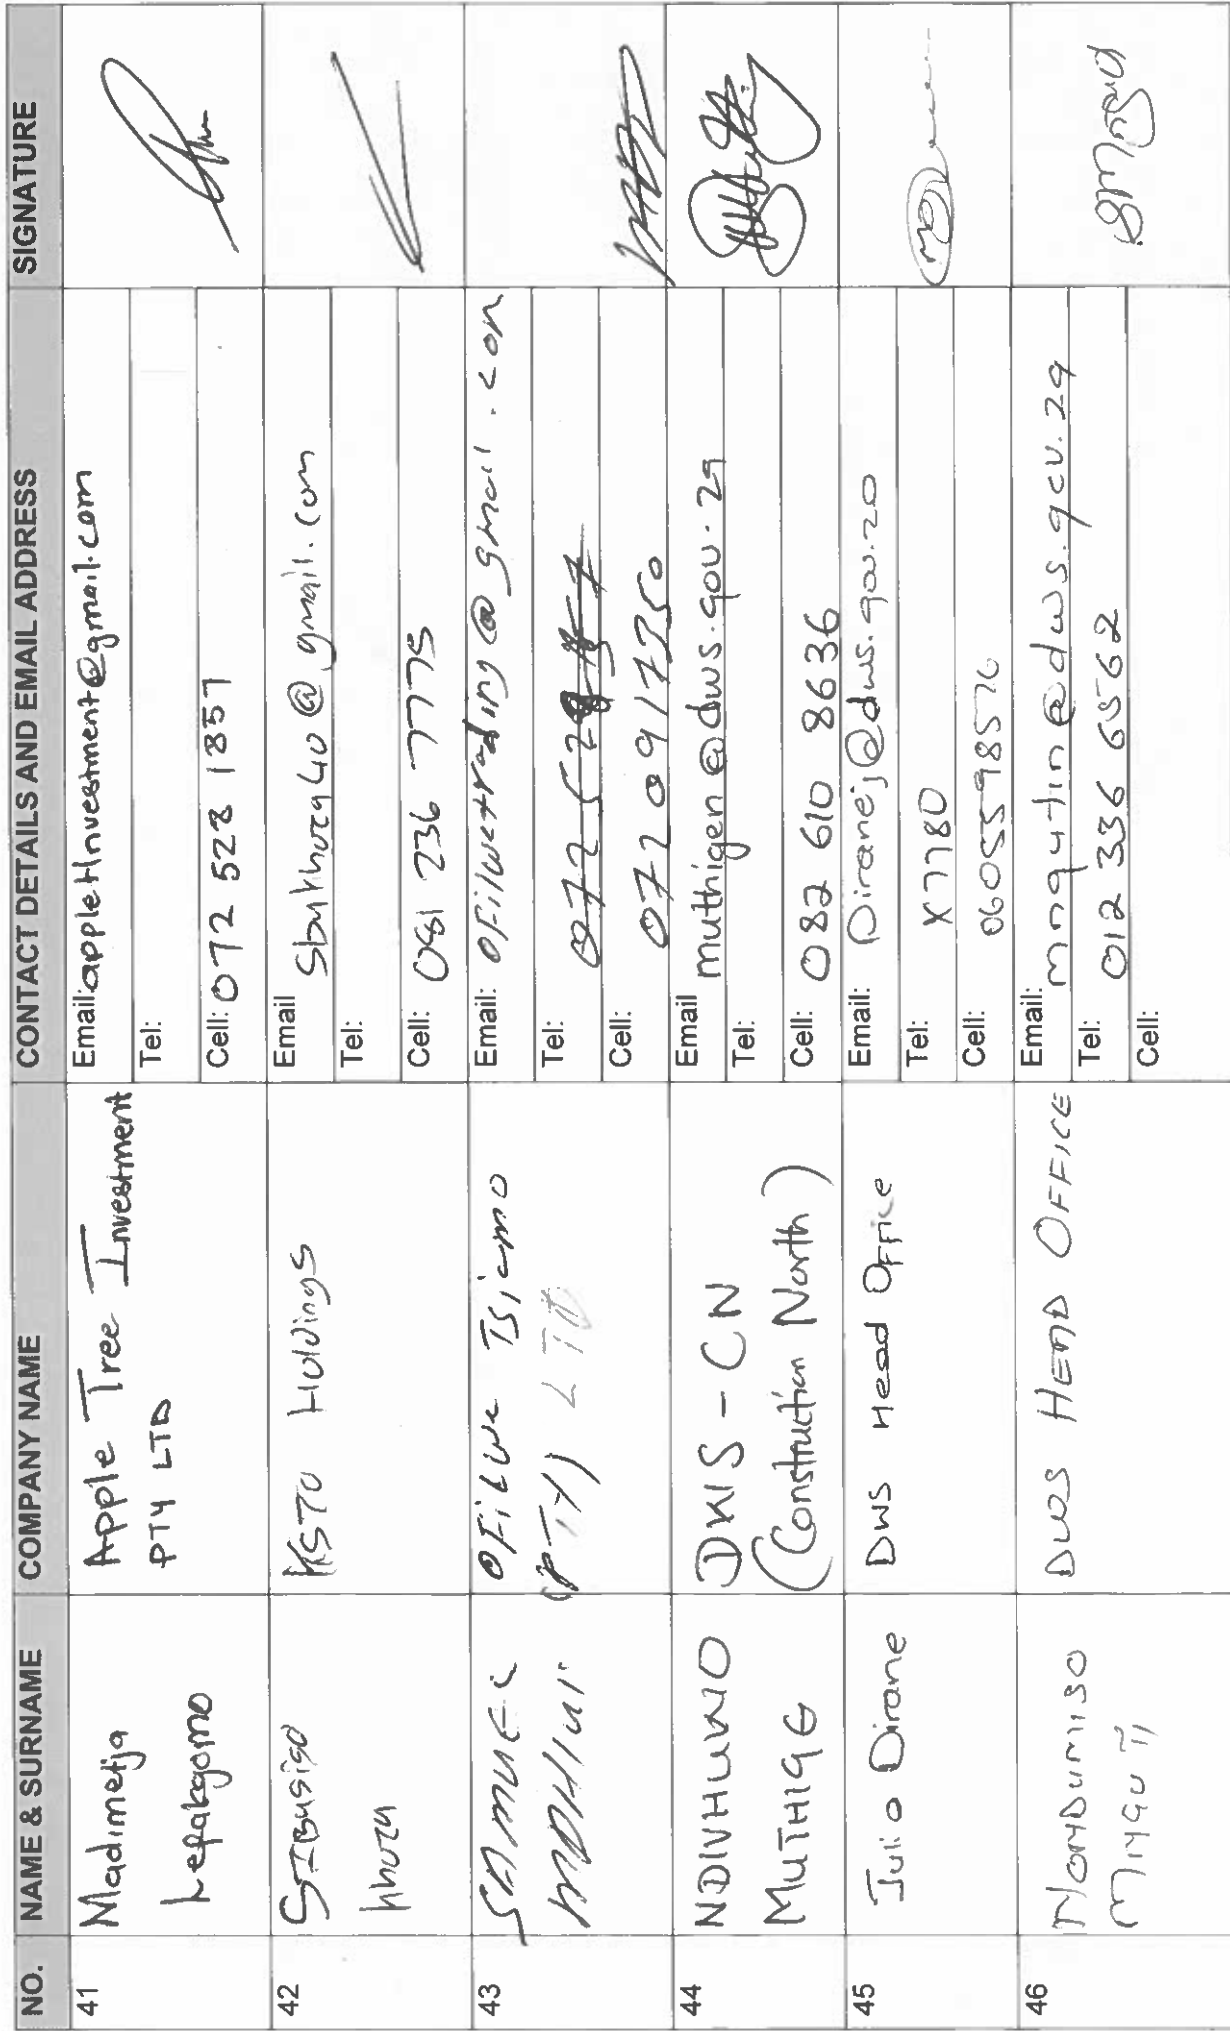 NO. NAME & SURNAME COMPANY NAME CONTACT DETAILS AND EMAIL ADDRESS SIGNATURE
41
Madimetja
Lefakgomo
Apple Tree Investment
PTY LTD
Email: appletInvestment@gmail.com
Tel:
Cell: 072 528 1857
42
SIBusiso
khoza
KSTO Holdings
Email sbukhoza40@gmail.com
Tel:
Cell: 081 236 7775
43
SAMUEL
MDHLULI
OFILWE Tsiamo
(PTY) LTD
Email: ofilwetrading@gmail.com
Tel:
Cell: 0720917350
44
NDIVHUWO
MUTHIGE
DWS - CN
(Construction North)
Email muthigen@dws.gov.za
Tel:
Cell: 082 610 8636
45
Julio Dirane
DWS Head Office
Email: Diranej@dws.gov.za
Tel: X7780
Cell: 0605598576
46
NOMDUMISO
MNGUTI
DWS HEAD OFFICE
Email: mngutin@dws.gov.za
Tel: 012 336 6562
Cell: